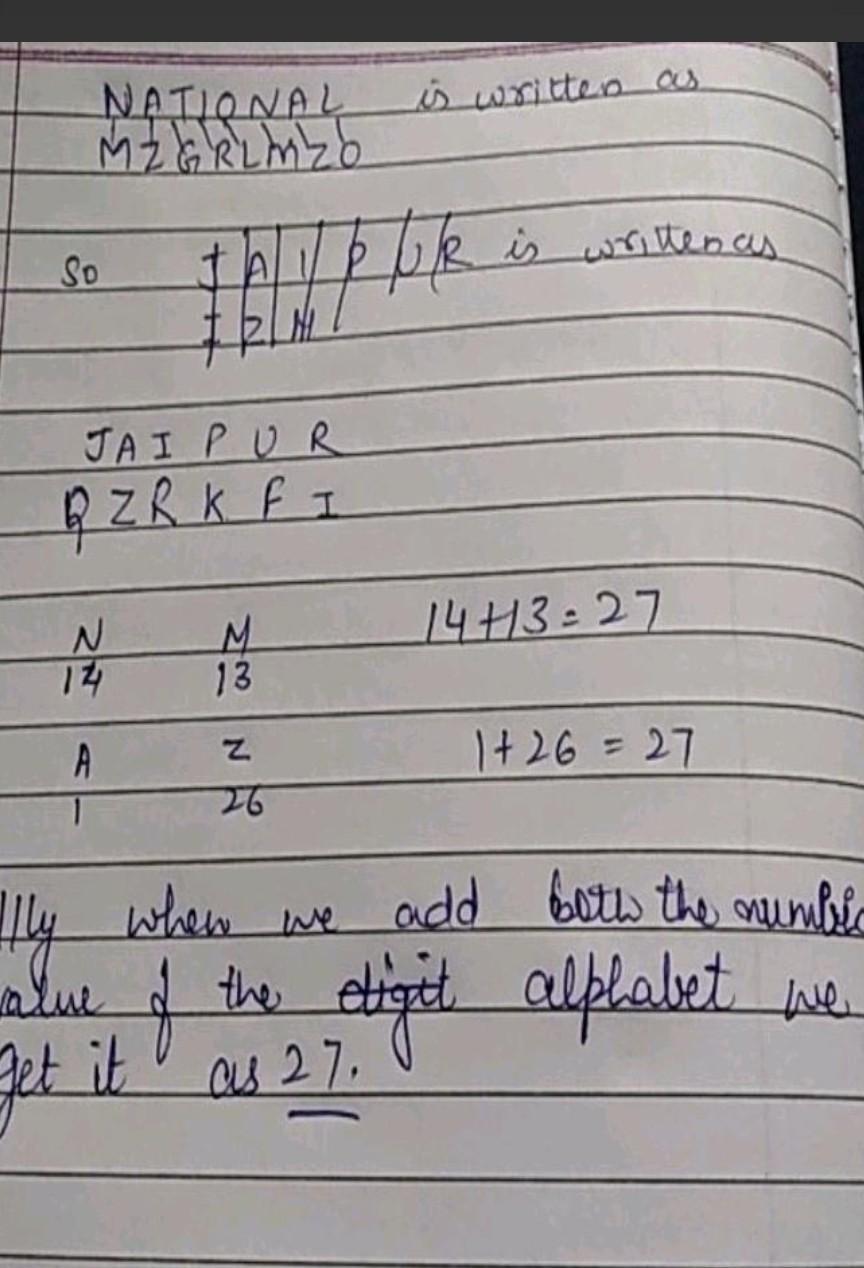 NATIONAL is written as
MZGRLMZO
So JAIPUR is written as
I Z
JAIPUR
QZRKFI
N M 14+13=27
14 13
A Z 1+26=27
1 26
lllly when we add both the numeric
value of the digit alphabet we
get it as 27.